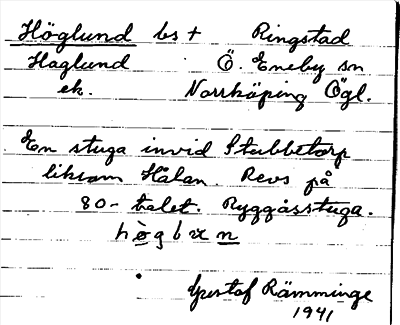 Höglund bs + Ringstad
Haglund Ö. Eneby sn
ek. Norrköping Ögl.
En stuga invid Stubbetorp
liksom Hålan. Revs på
80-talet. Ryggåsstuga.
Gustaf Rämminge
1941